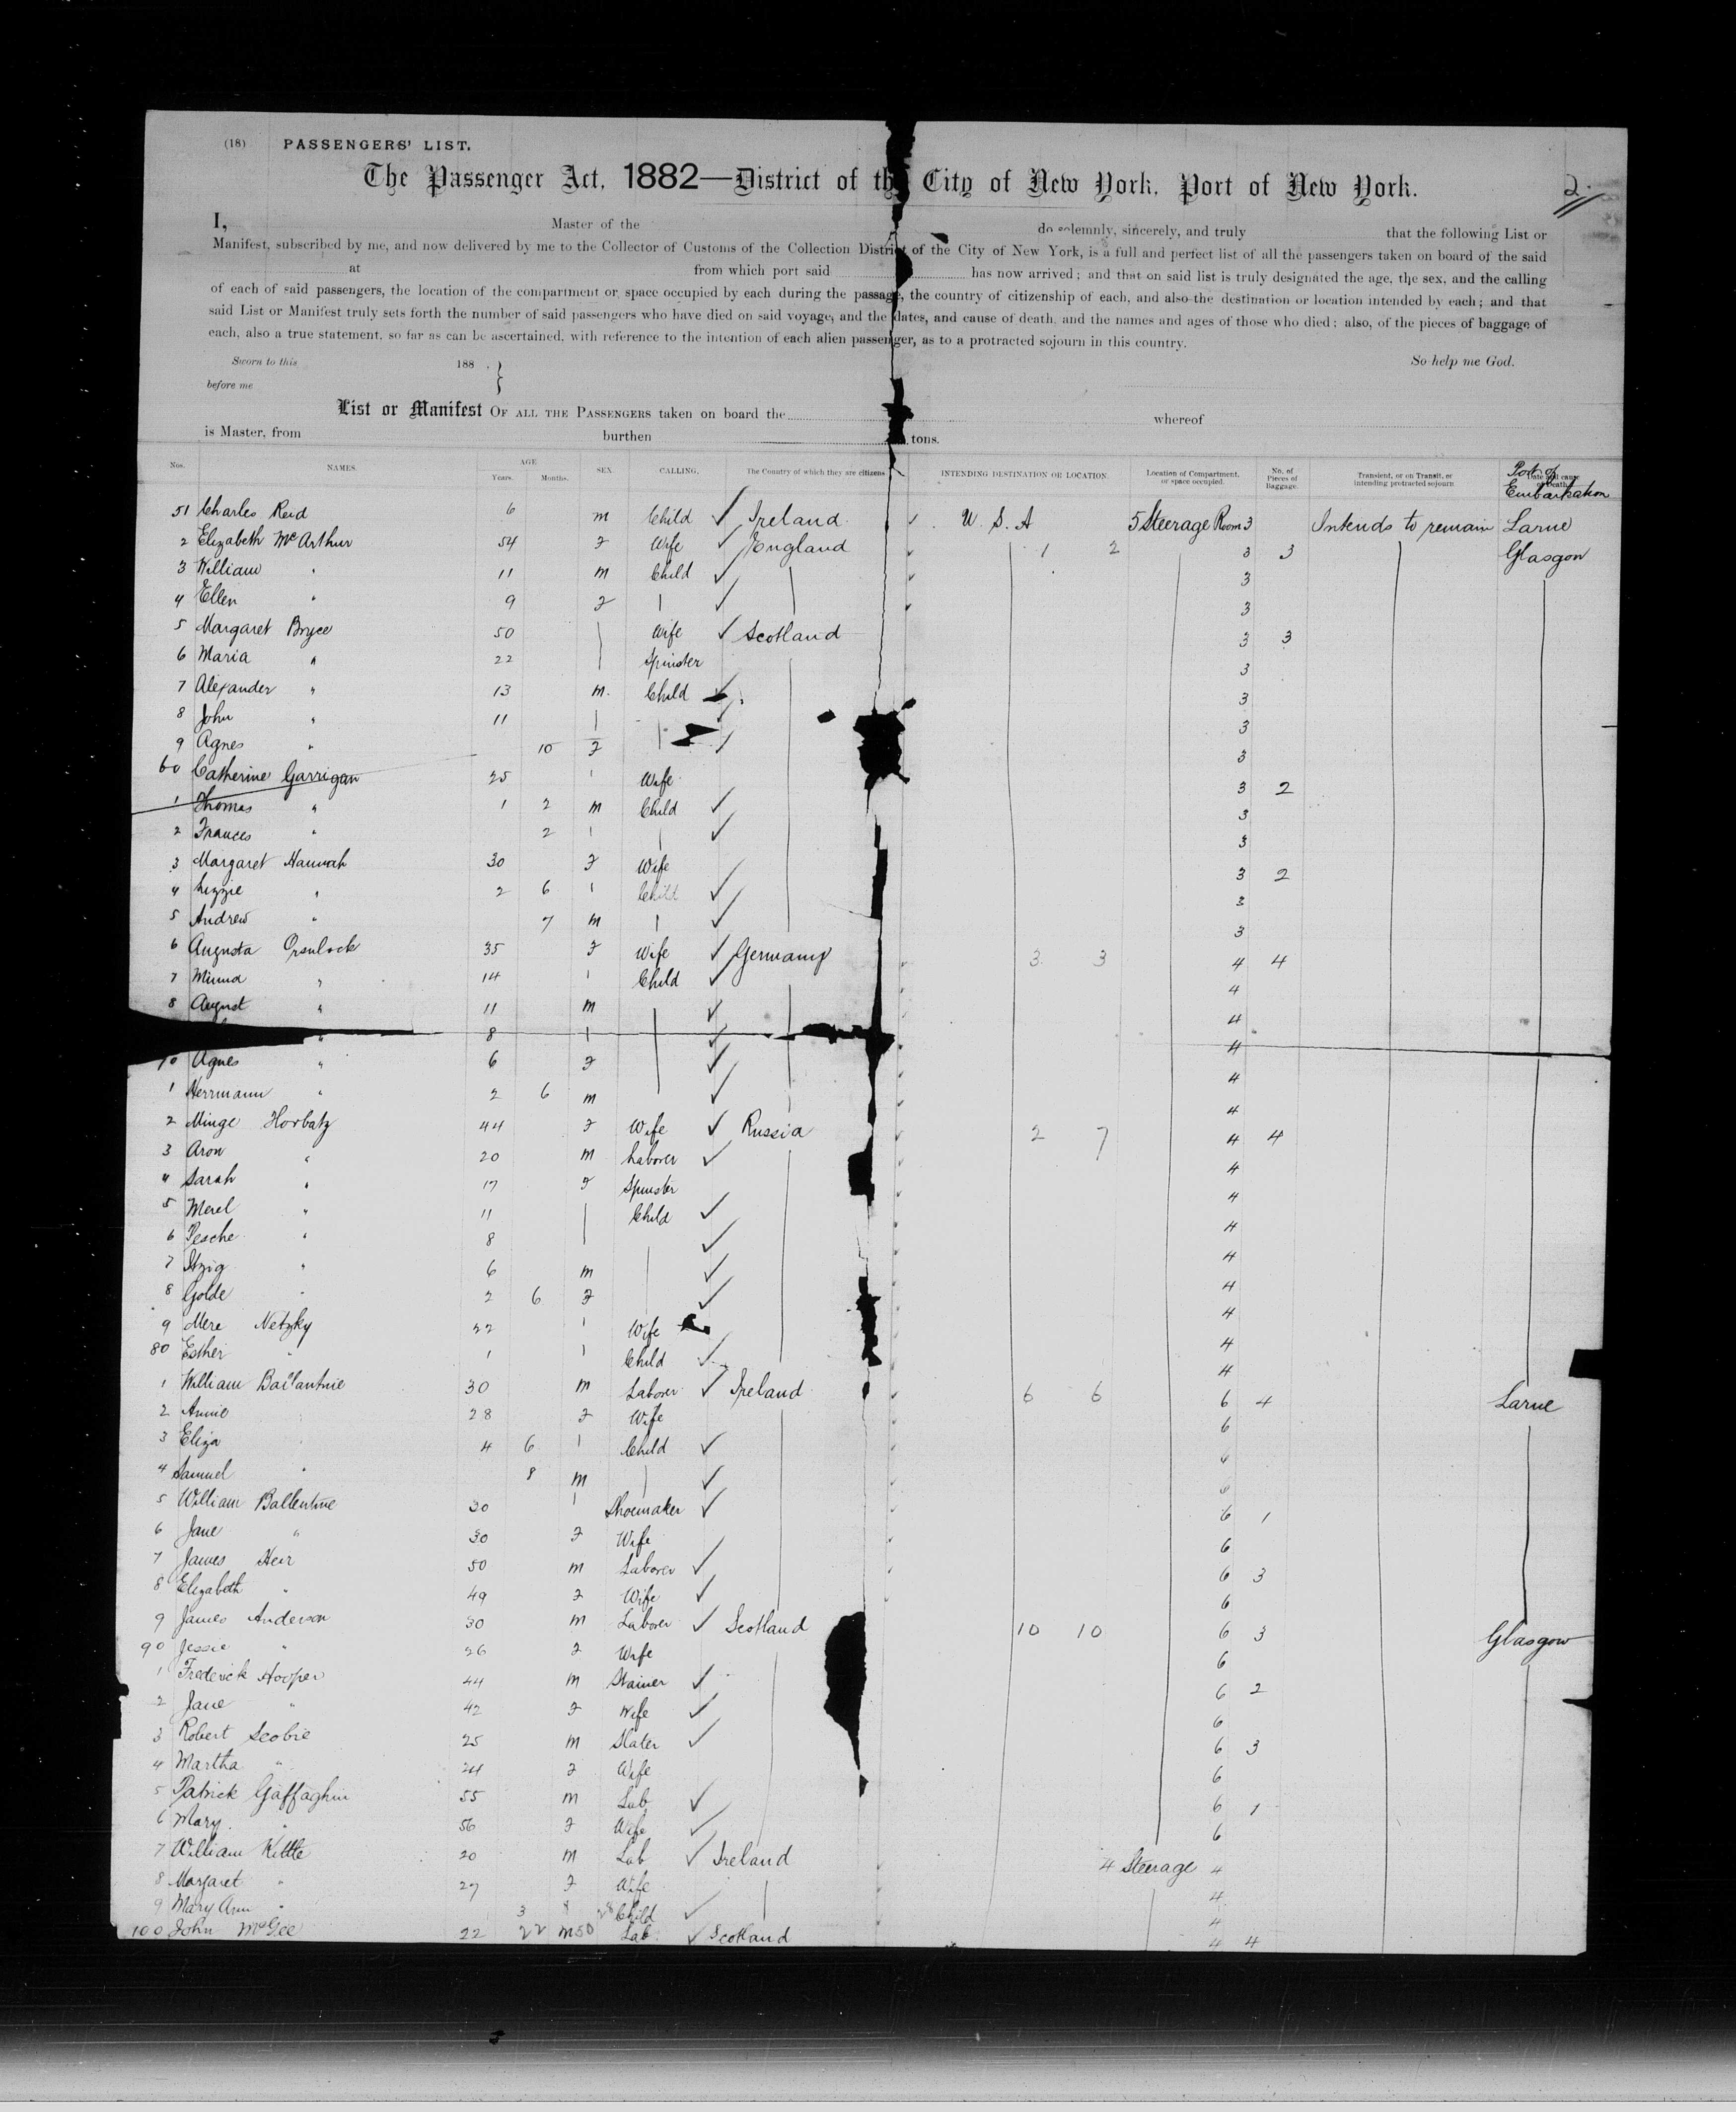 (18) PASSENGERS' LIST.
The Passenger Act, 1882—District of the City of New York, Port of New York.
2.
I, Master of the do solemnly, sincerely, and truly that the following List or
Manifest, subscribed by me, and now delivered by me to the Collector of Customs of the Collection District of the City of New York, is a full and perfect list of all the passengers taken on board of the said
at from which port said has now arrived; and that on said list is truly designated the age, the sex, and the calling
of each of said passengers, the location of the compartment or space occupied by each during the passage, the country of citizenship of each, and also the destination or location intended by each; and that
said List or Manifest truly sets forth the number of said passengers who have died on said voyage, and the dates, and cause of death, and the names and ages of those who died; also, of the pieces of baggage of
each, also a true statement, so far as can be ascertained, with reference to the intention of each alien passenger, as to a protracted sojourn in this country.
Sworn to this 188 . So help me God.
before me
List or Manifest OF ALL THE PASSENGERS taken on board the whereof
is Master, from burthen tons.
Nos. NAMES. AGE Years. Months. SEX. CALLING. The Country of which they are citizens INTENDING DESTINATION OR LOCATION Location of Compartment, or space occupied. No. of Pieces of Baggage. Transient, or on Transit, or intending protracted sojourn Date and cause of Death. Port of Embarkation
51 Charles Reid 6 m Child ✓ Ireland U. S. A 5 Steerage Room 3 Intends to remain Larne
2 Elizabeth McArthur 54 f Wife ✓ England 1 2 3 3 Glasgow
3 William " 11 m Child ✓ 3
4 Ellen " 9 f ✓ 3
5 Margaret Bryce 50 Wife ✓ Scotland 3 3
6 Maria " 22 Spinster 3
7 Alexander " 13 m. Child ✓ 3
8 John " 11 ✓ 3
9 Agnes " 10 f ✓ 3
60 Catherine Garrigan 25 Wife 3 2
1 Thomas " 1 2 m Child ✓ 3
2 Frances " 2 ✓ 3
3 Margaret Hannah 30 f Wife 3 2
4 Lizzie " 2 6 Child ✓ 3
5 Andrew " 7 m ✓ 3
6 Augusta 35 f Wife ✓ Germany 3 3 4 4
7 Minna " 14 Child ✓ 4
8 August " 11 m ✓ 4
" 8 ✓ 4
70 Agnes " 6 f ✓ 4
1 Herrmann " 2 6 m ✓ 4
2 Minge Horbatz 44 f Wife ✓ Russia 2 7 4 4
3 Aron " 20 m Laborer ✓ 4
4 Sarah " 17 f Spinster 4
5 Merel " 11 Child ✓ 4
6 Pesche " 8 ✓ 4
7 Itzig " 6 m ✓ 4
8 Golde " 2 6 f ✓ 4
9 Mere Netzky 22 Wife 4
80 Esther " 1 Child ✓ 4
1 William Ballantine 30 m Laborer ✓ Ireland 6 6 6 4 Larne
2 Annie " 28 f Wife 6
3 Eliza " 4 6 Child ✓ 6
4 Samuel " 8 m ✓ 6
5 William Ballentine 30 Shoemaker ✓ 6 1
6 Jane " 30 f Wife 6
7 James 50 m Laborer ✓ 6 3
8 Elizabeth " 49 f Wife ✓ 6
9 James Anderson 30 m Laborer ✓ Scotland 10 10 6 3 Glasgow
90 Jessie " 26 f Wife 6
1 Frederick Hooper 44 m Stainer ✓ 6 2
2 Jane " 42 f Wife ✓ 6
3 Robert Scobie 25 m Slater ✓ 6 3
4 Martha " 24 f Wife 6
5 Patrick Gaffaghin 55 m Lab ✓ 6 1
6 Mary " 56 f Wife ✓ 6
7 William Kittle 20 m Lab ✓ Ireland 4 Steerage 4
8 Margaret " 27 f Wife 4
9 Mary Ann " 3 Child ✓ 4
100 John McGee 22 22 m 50 Lab. ✓ Scotland 4 4